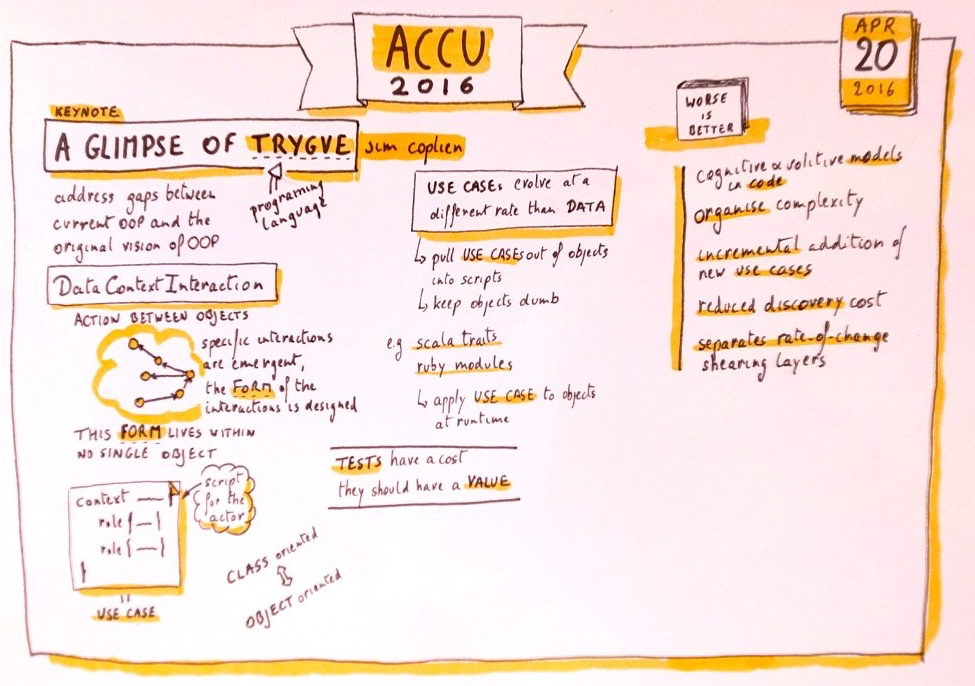 ACCU
2016
APR
20
2016
KEYNOTE
A GLIMPSE OF TRYGVE
Jim coplien
programing
language
address gaps between
current OOP and the
original vision of OOP
Data Context Interaction
ACTION BETWEEN OBJECTS
specific interactions
are emergent,
the FORM of the
interactions is designed
THIS FORM LIVES WITHIN
NO SINGLE OBJECT
context — {
role {—}
role {—}
}
script
for the
actor
||
USE CASE
CLASS oriented
OBJECT oriented
USE CASEs evolve at a
different rate than DATA
pull USE CASEs out of objects
into scripts
keep objects dumb
e.g scala traits
ruby modules
apply USE CASE to objects
at runtime
TESTS have a cost
they should have a VALUE
WORSE
IS
BETTER
cognitive & volitive models
in code
organise complexity
incremental addition of
new use cases
reduced discovery cost
separates rate-of-change
shearing layers